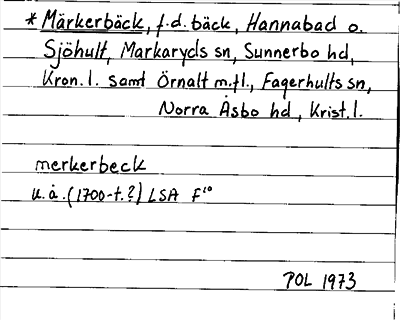 * Märkerbäck, f.d. bäck, Hannabad o.
Sjöhult, Markaryds sn, Sunnerbo hd,
Kron. l. samt Örnalt m.fl., Fagerhults sn,
Norra Åsbo hd, Krist. l.
merkerbeck
u.å. (1700-t.?) LSA F¹⁰
POL 1973